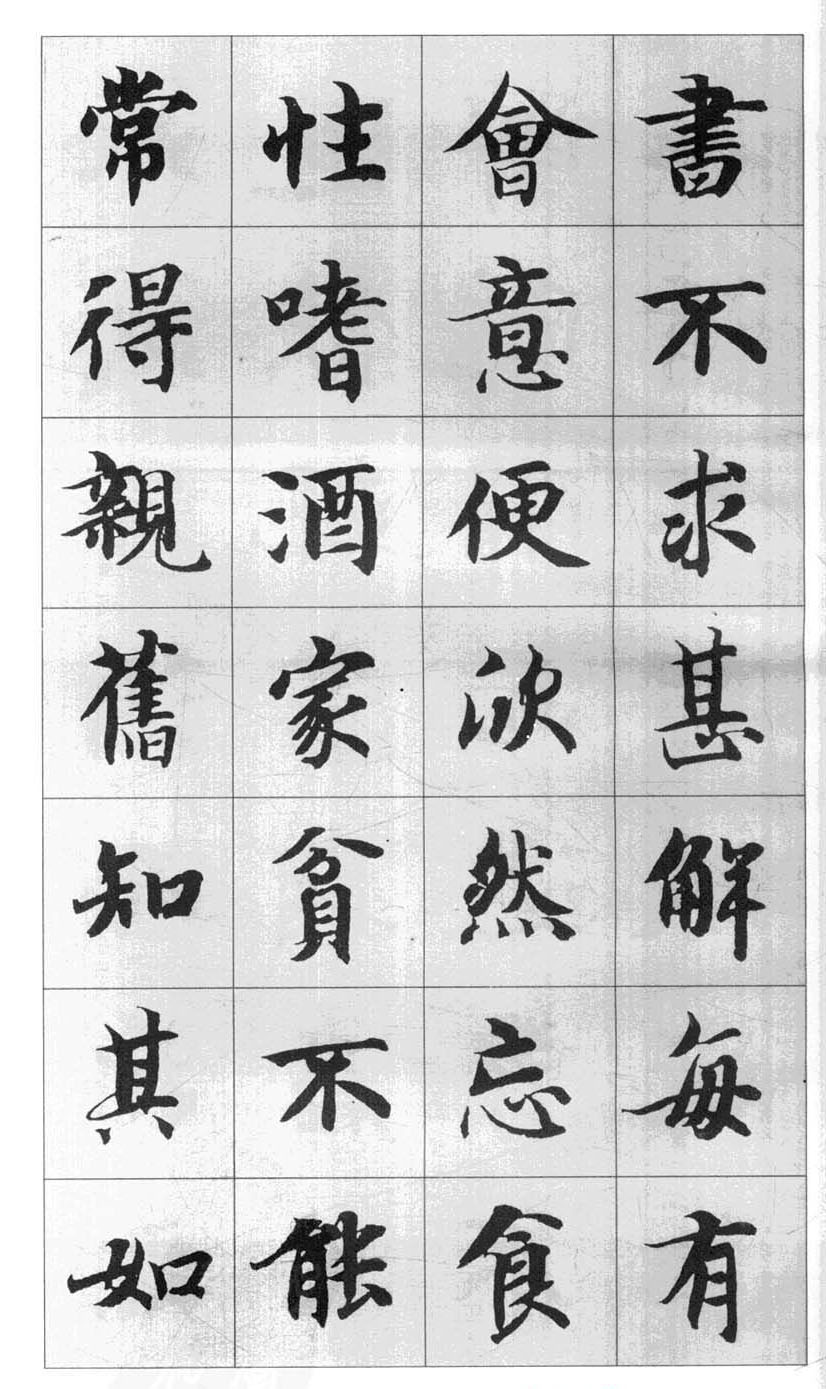 書不求甚解每有
會意便欣然忘食
性嗜酒家貧不能
常得親舊知其如